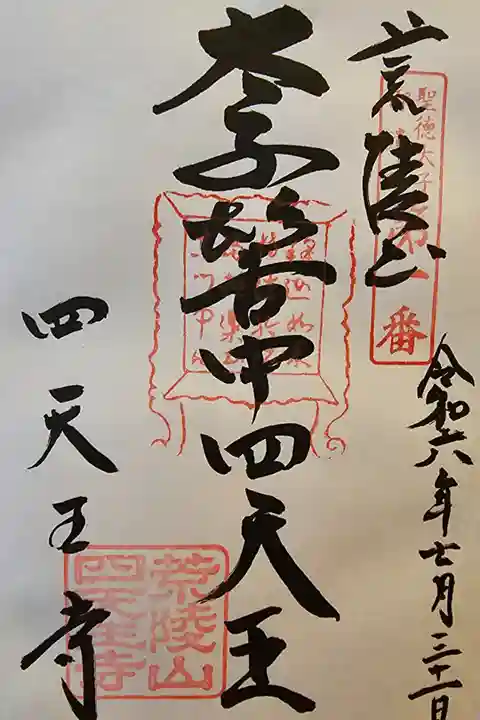 荒陵山
聖徳太子
第一番
令和六年七月三十一日
太子髻中四天王
四天王寺
荒陵山
四天王寺